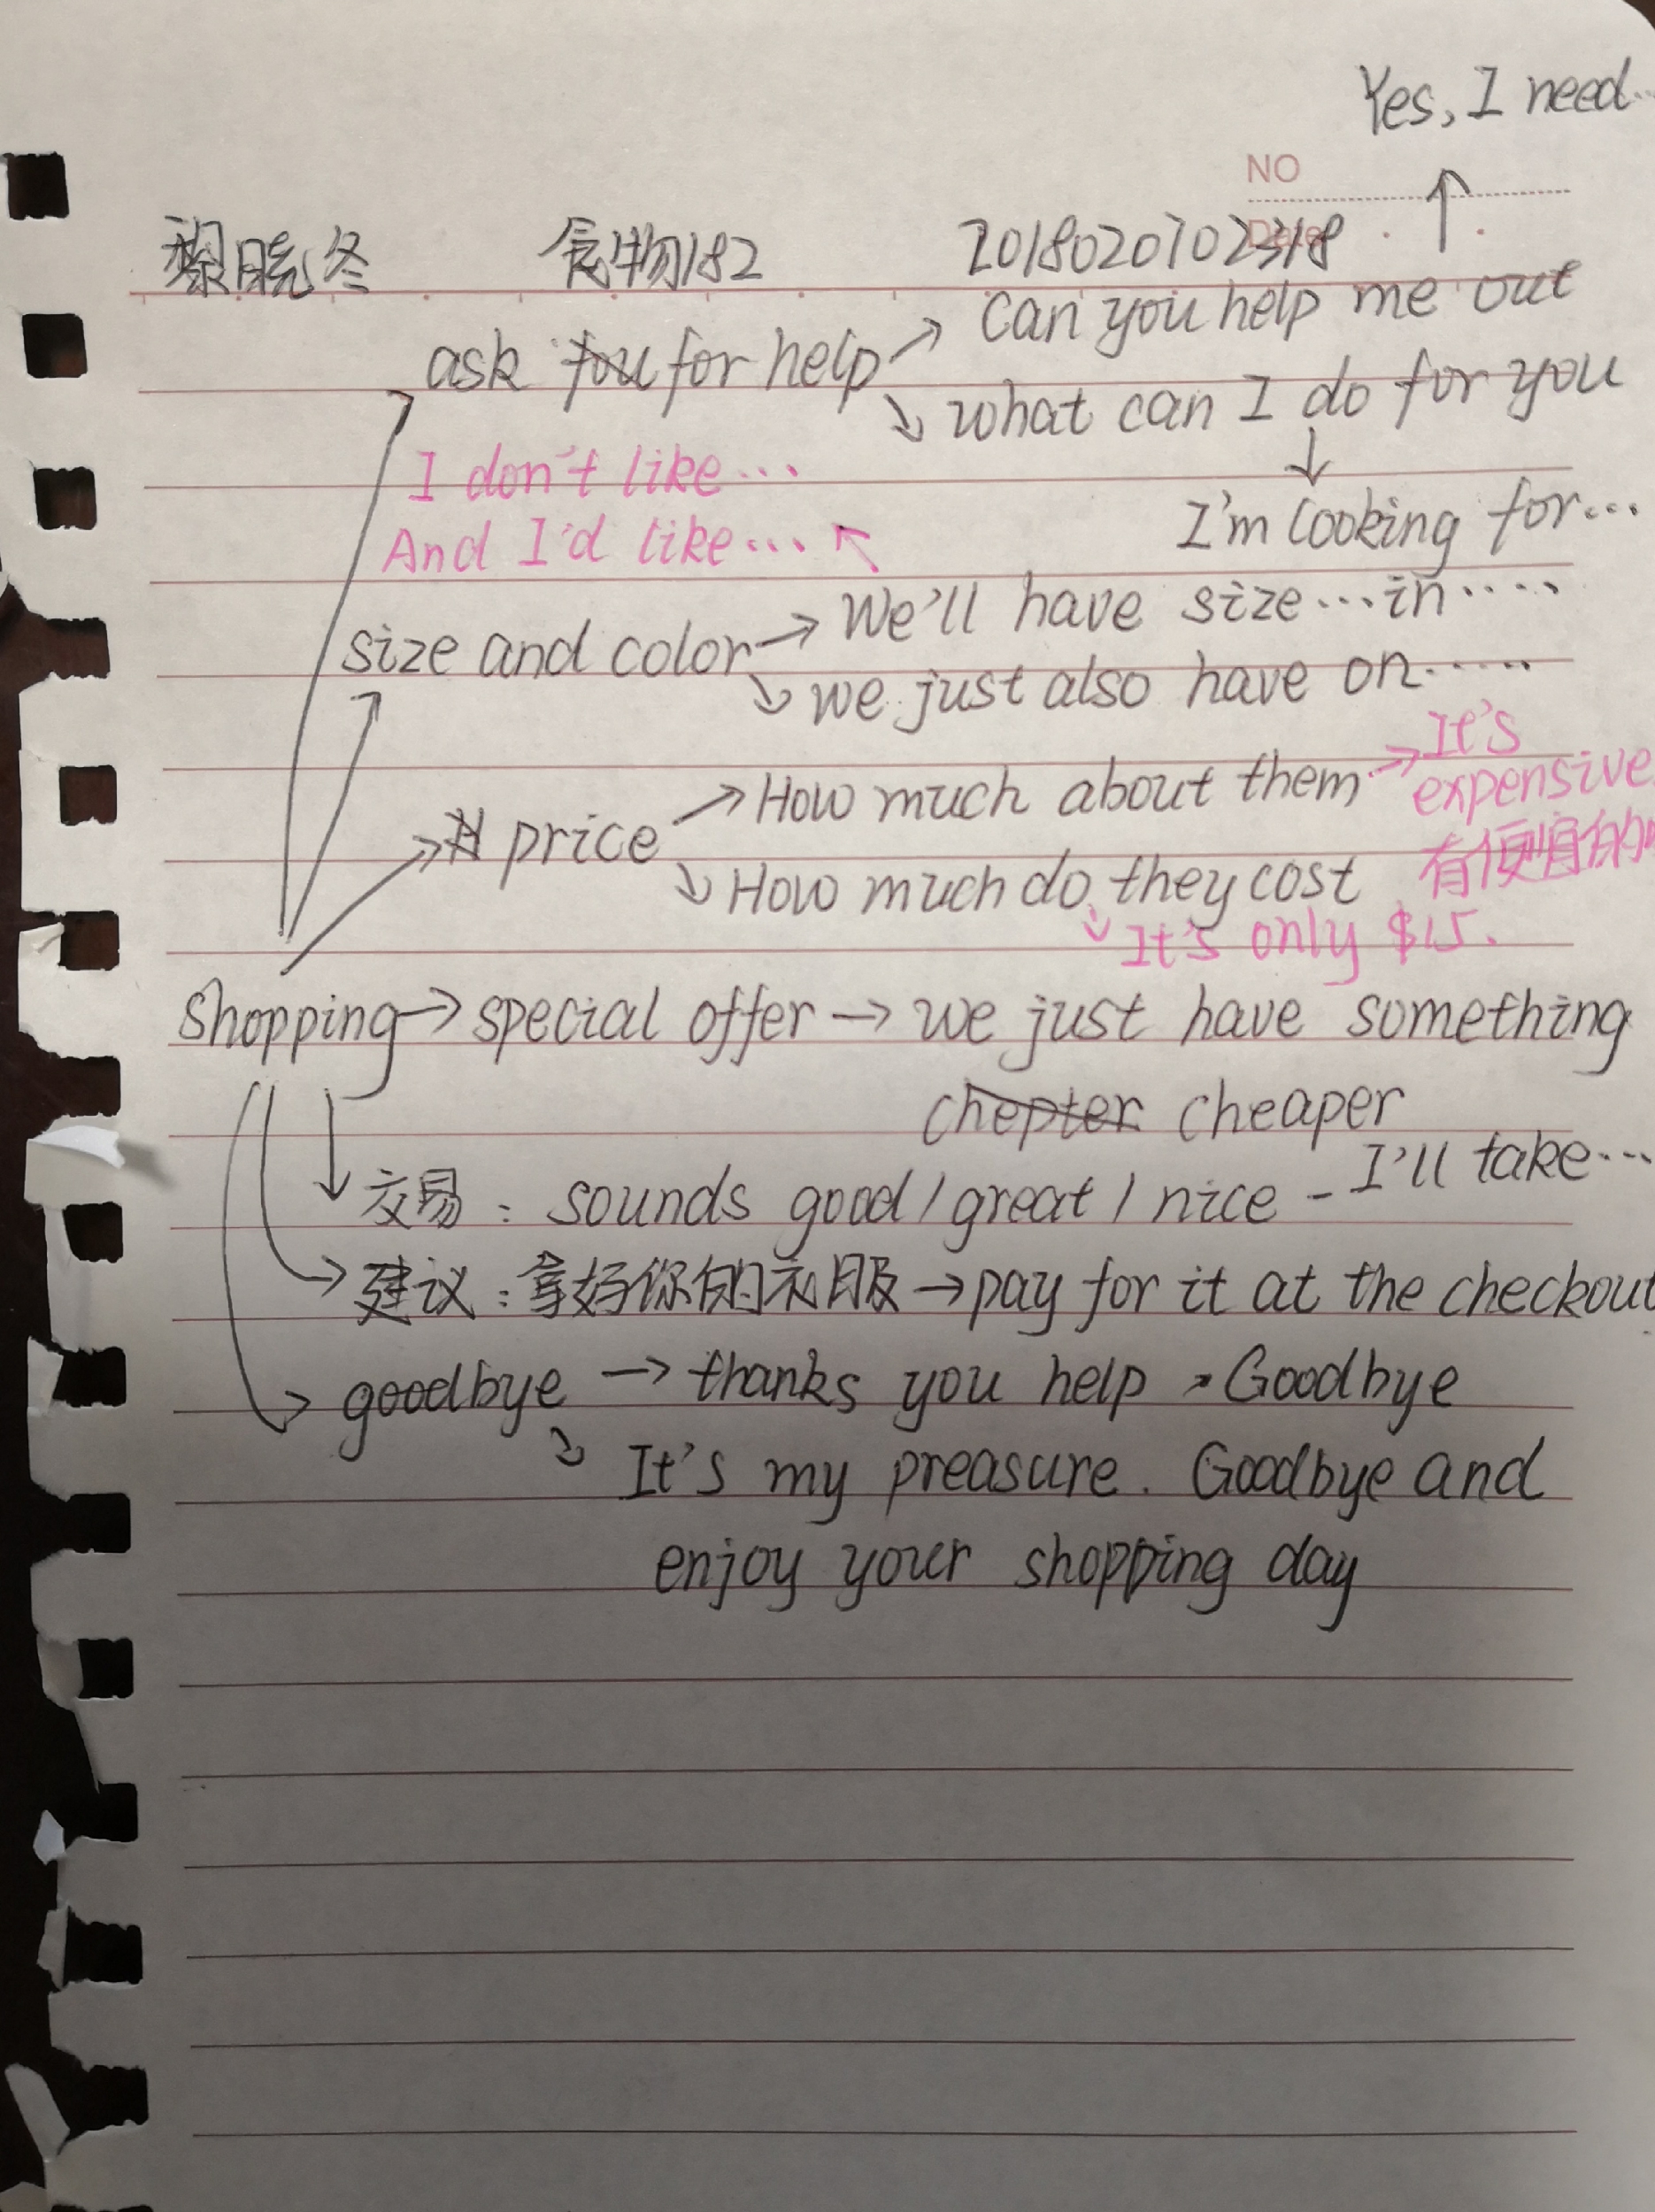 Yes, I need...
NO
Date
黎晓冬 食物182 2018020702318
ask for help → Can you help me out
↘ what can I do for you
I don't like...
And I'd like...
I'm looking for...
size and color → We'll have size...in....
↘ we just also have on.....
price → How much about them → It's
expensive
有便宜的
↘ How much do they cost
It's only $15.
shopping → special offer → we just have something
chepter cheaper
交易: sounds good / great / nice - I'll take...
建议: 拿好你的衣服 → pay for it at the checkout
goodbye → thanks you help Goodbye
↘ It's my preasure. Goodbye and
enjoy your shopping day